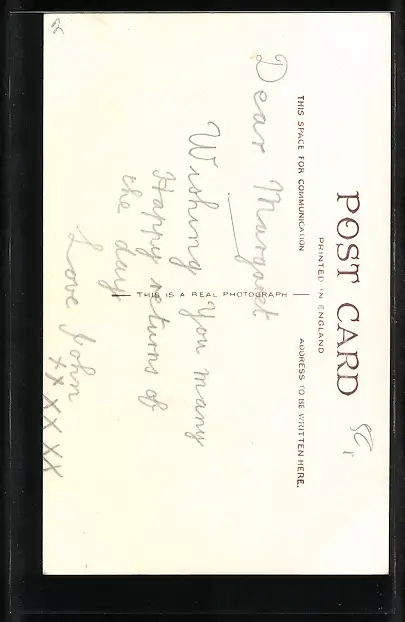 POST CARD
PRINTED IN ENGLAND
THIS SPACE FOR COMMUNICATION
ADDRESS TO BE WRITTEN HERE.
THIS IS A REAL PHOTOGRAPH
Dear Margaret
Wishing You many
Happy returns of
the day
Love John
XXXXX
2